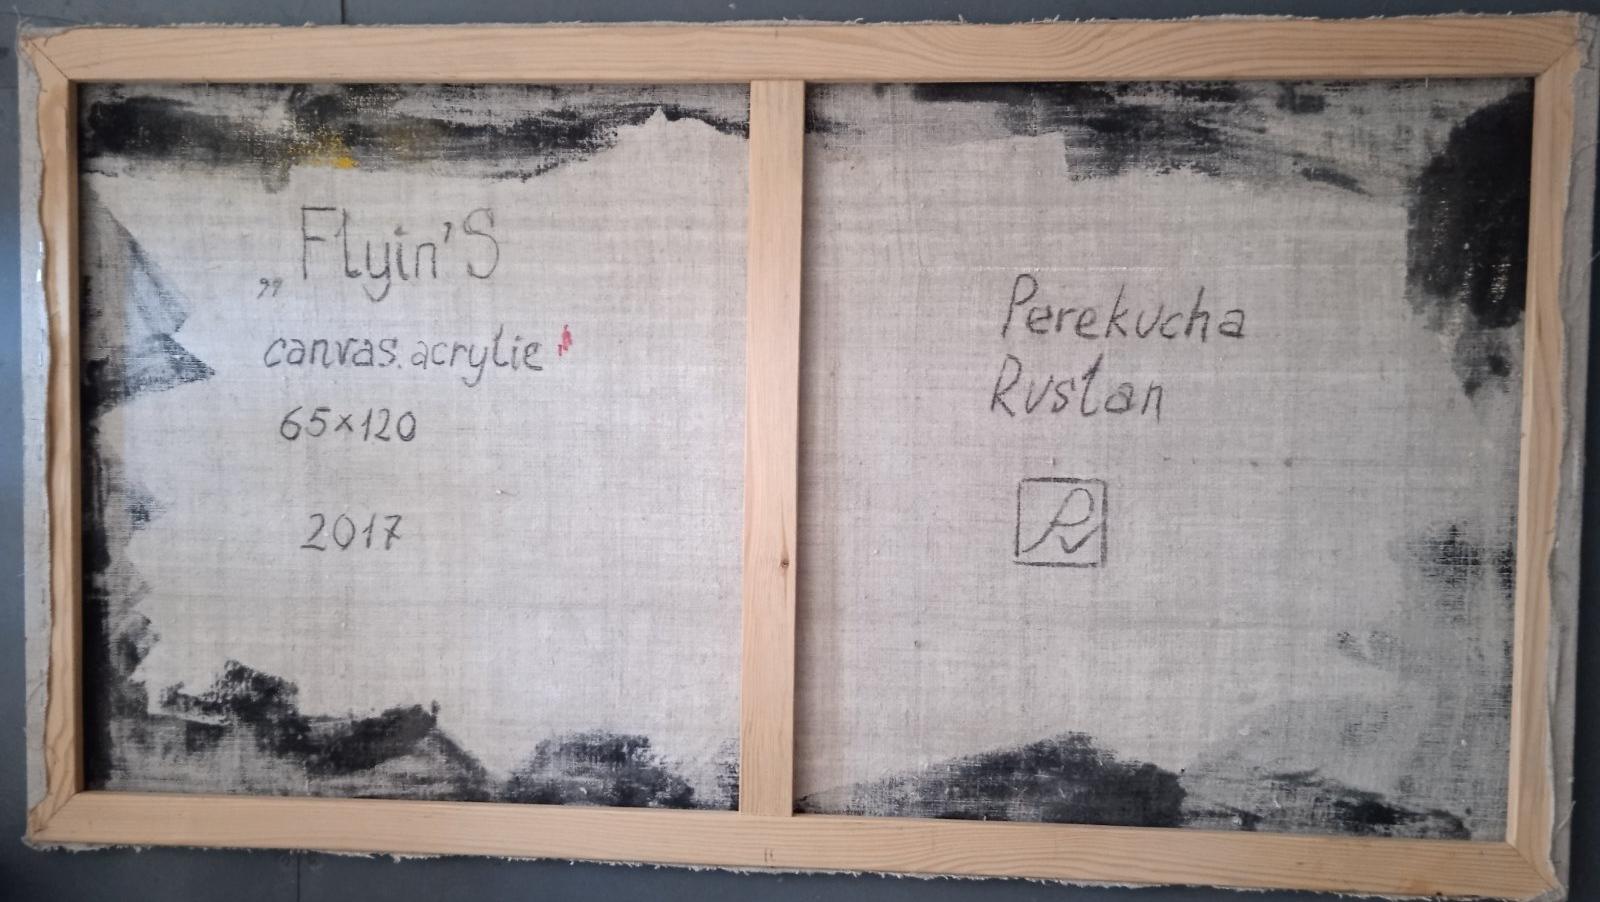 „Flyin'S
canvas. acrylic
65×120
2017
Perekucha
Ruslan